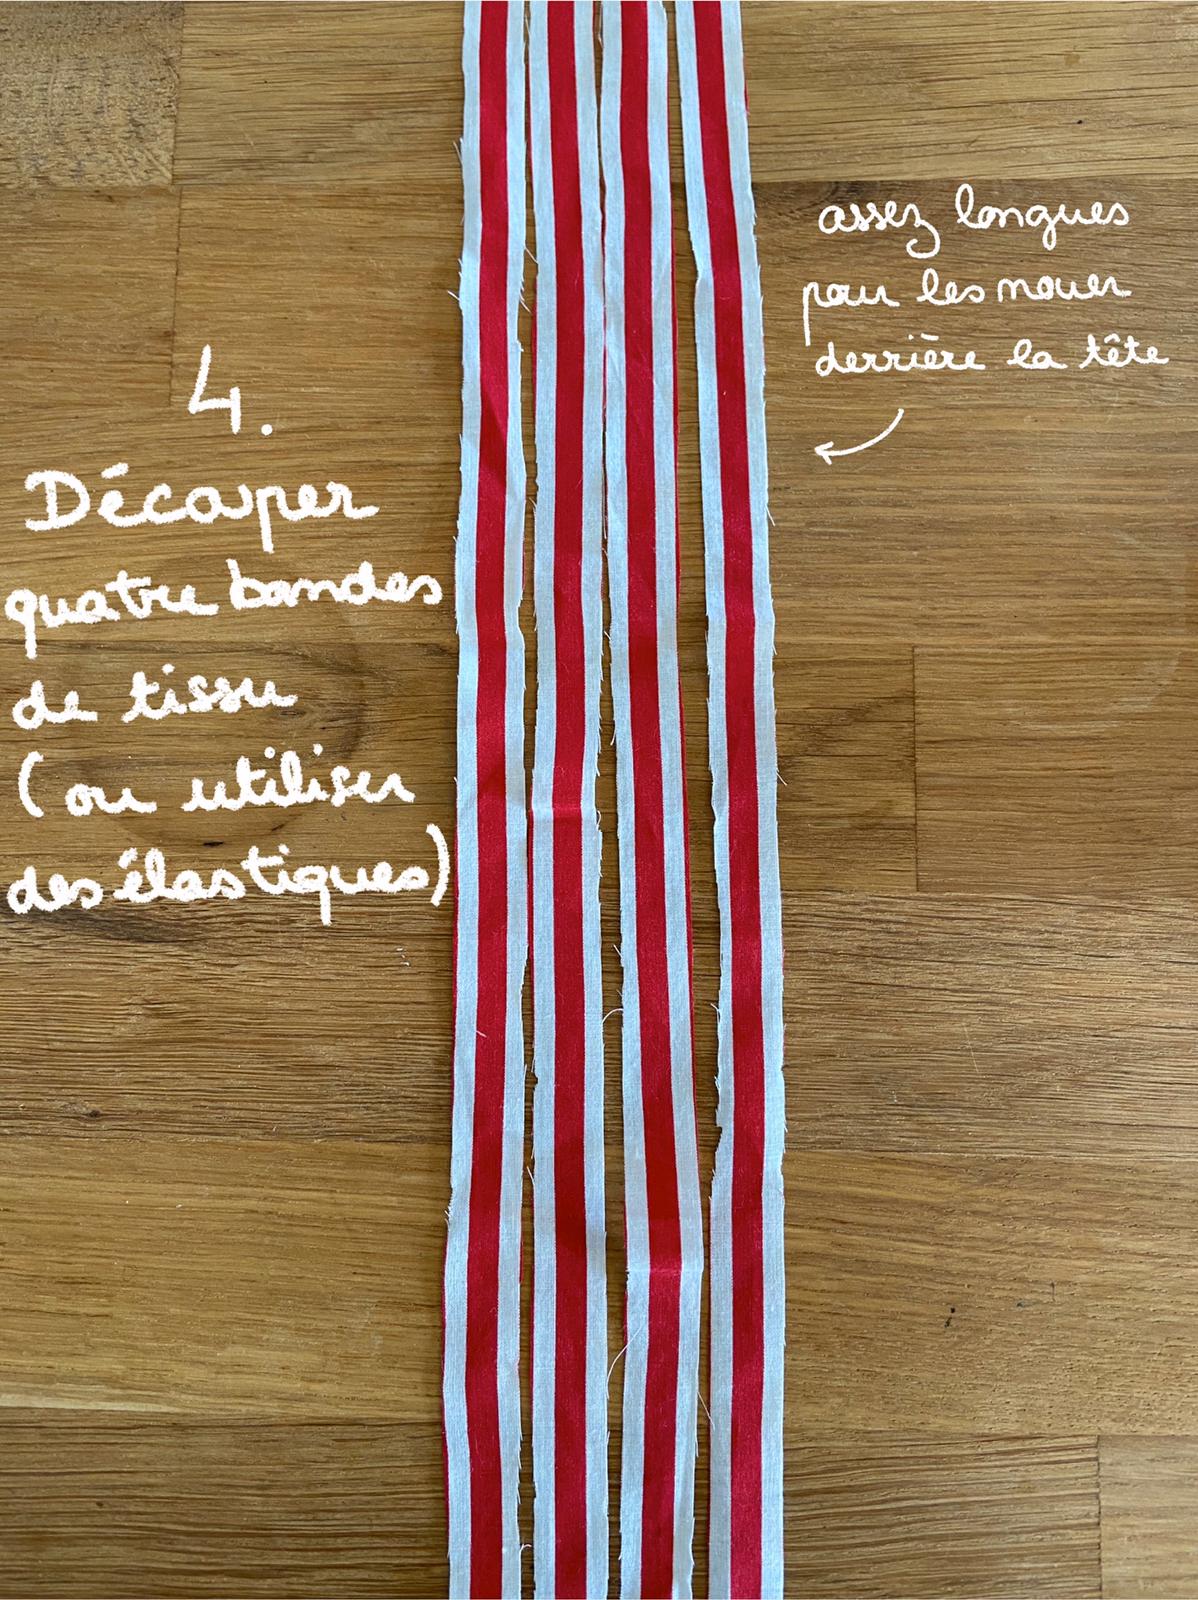 4.
Découper
quatre bandes
de tissu
(ou utiliser
des élastiques)
assez longues
pour les nouer
derrière la tête